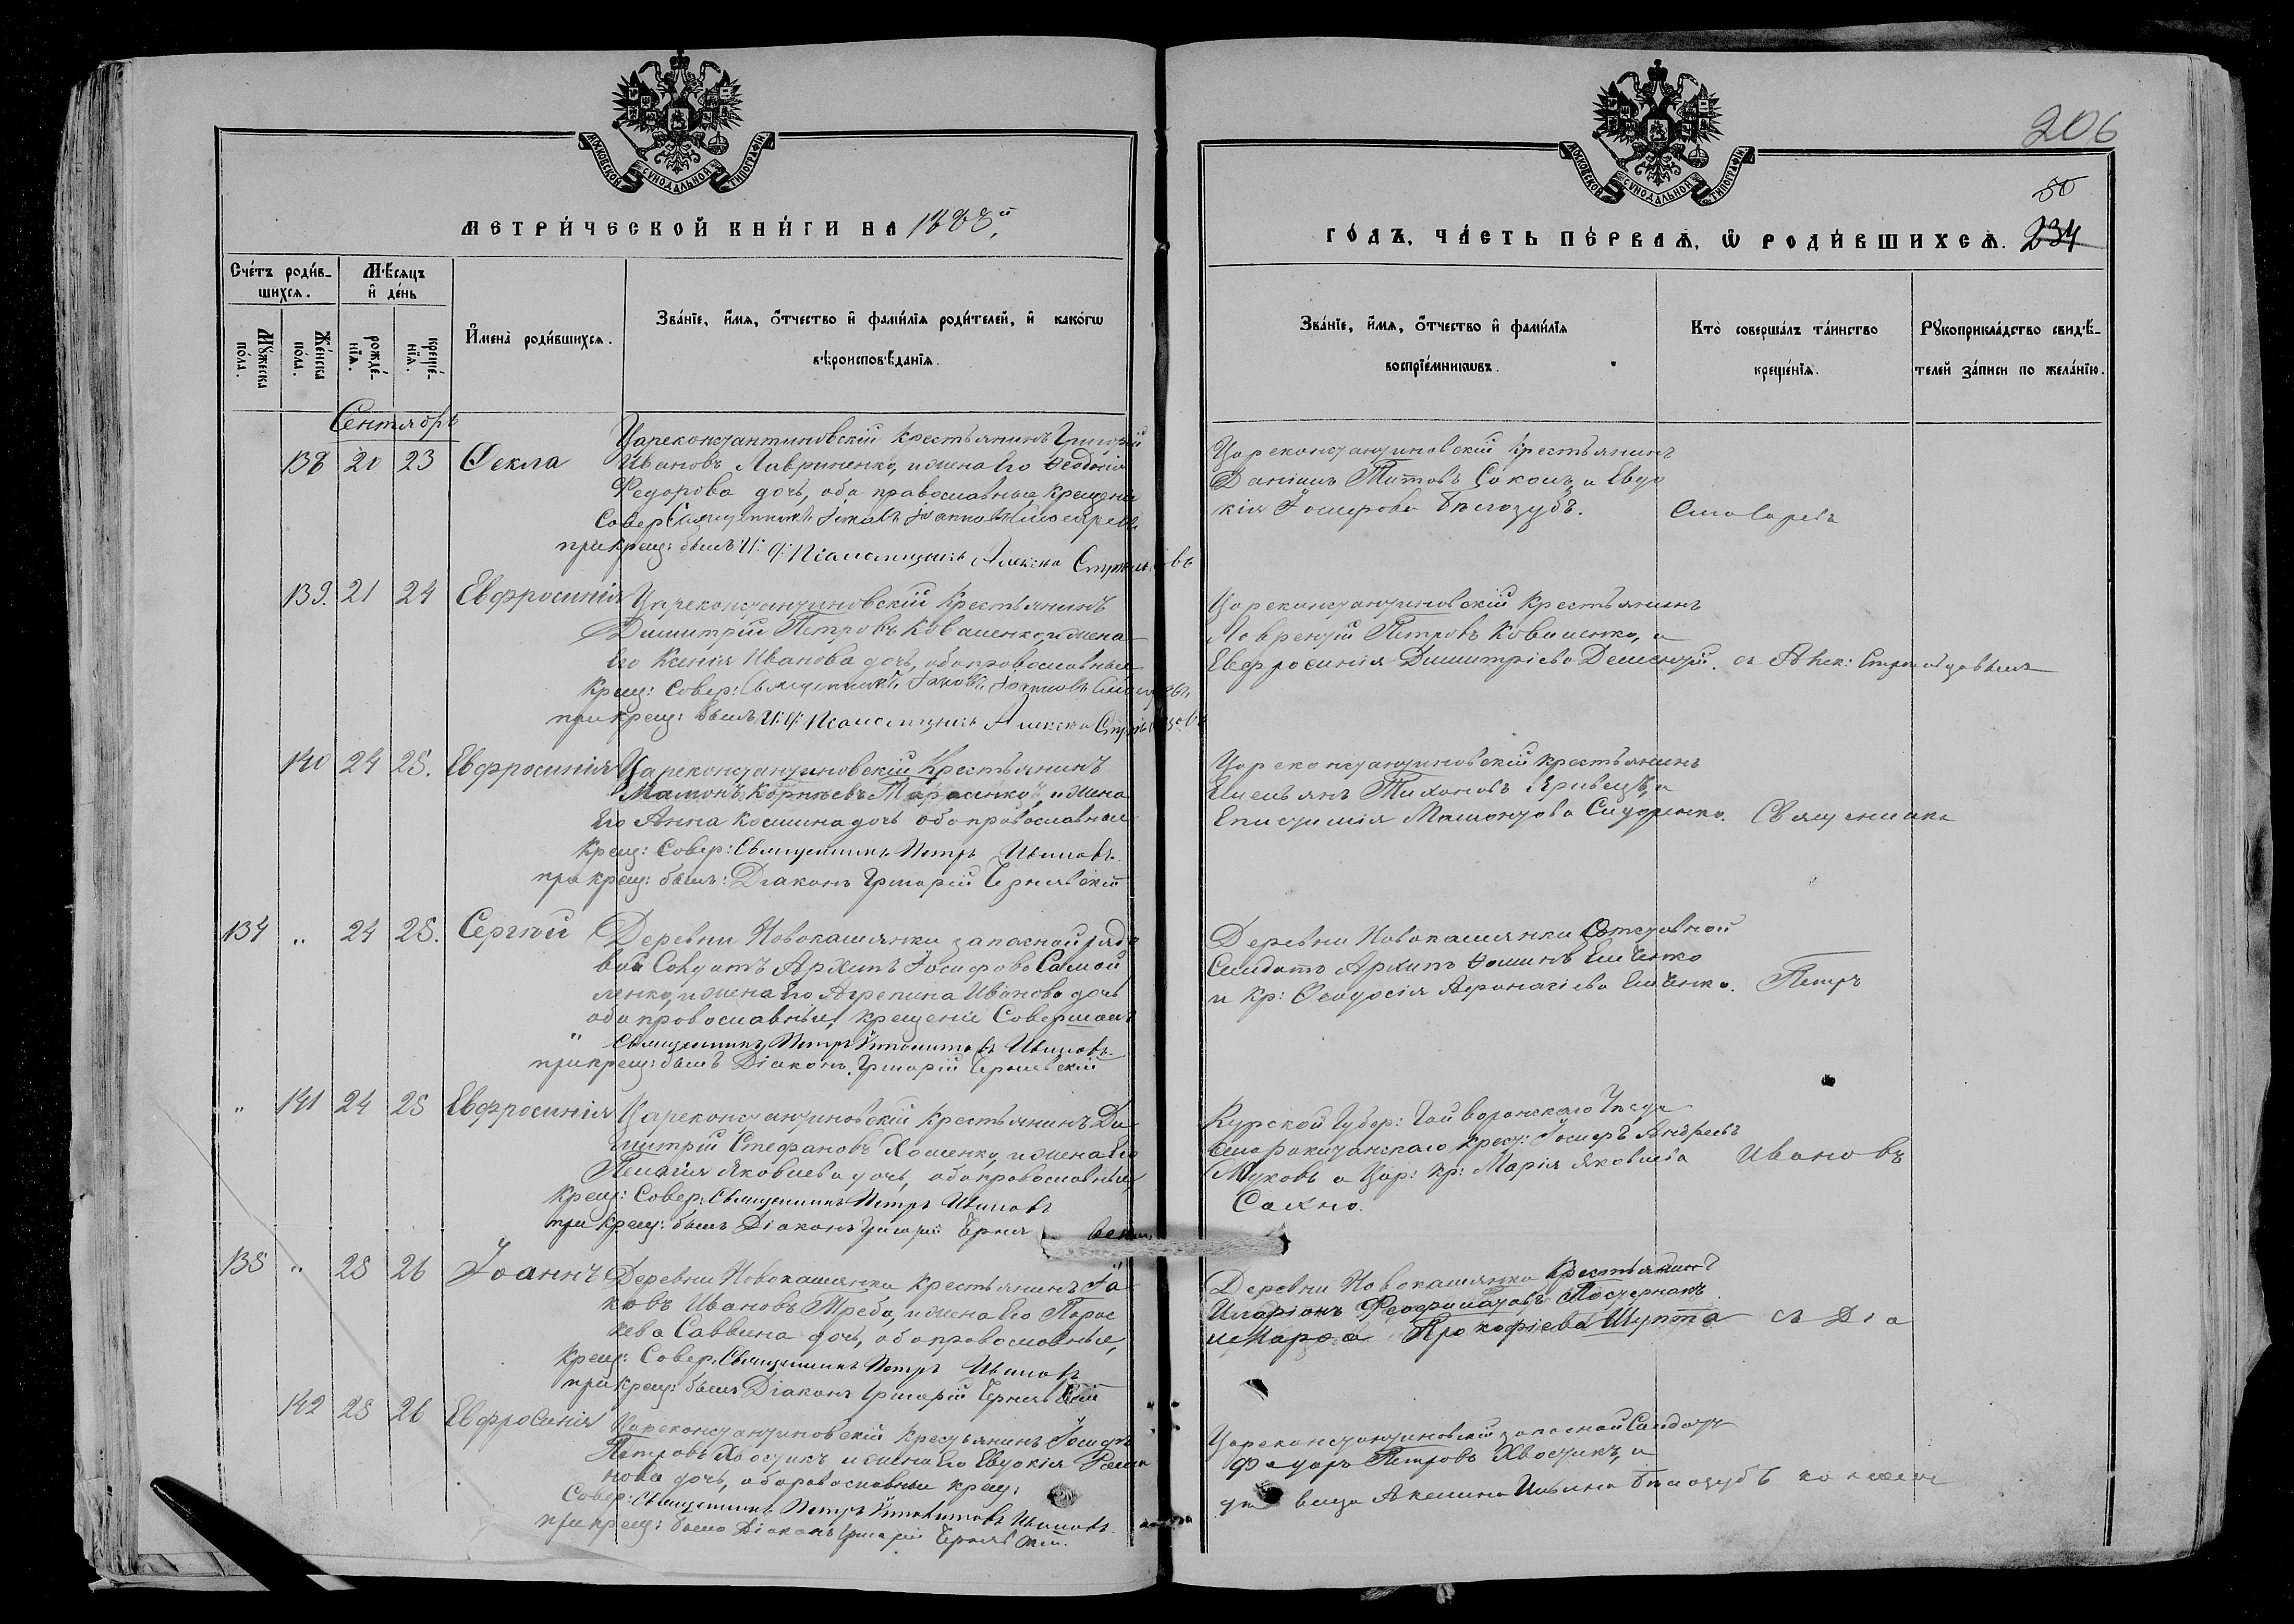 МОСКОВСКОЙ СУНОДАЛЬНОЙ ТИПОГРАФІИ
МЕТРИ́ЧЕСКОЙ КНИ́ГИ НА 1883й
Сче́тъ роди́в-
шихсѧ.
Мѣ́сяцъ
и҆ де́нь
Мꙋ́жеска
по́ла.
Же́нска
по́ла.
рожде́-
нїѧ.
креще́-
нїѧ.
И҆мена̀ роди́вшихсѧ.
Зва́нїе, и҆́мѧ, ѻ҆́тчество и҆ фами́лїѧ роди́телей, и҆ како́гѡ
вѣроисповѣ́данїѧ.
Сентябрь
138 20 23 Ѳекла
Цареконстантиновскій крестьянинъ Григорій
Ивановъ Лавриненко, и жена его Ѳеодосія
Федорова дочь, оба православные, Крещеніе
Совер: Священникъ Іаковъ
при крещ: былъ И: д: Псаломщикъ Алексѣй
139. 21 24 Евфросинія
Цареконстантиновскій Крестьянинъ
Димитрій Петровъ Коваленко, и жена
Его Ксенія Иванова дочь, оба православные
Крещ: Совер: Священникъ Іаковъ
при крещ: былъ И: д: Псаломщикъ Алексѣй
140 24 25. Евфросинія
Цареконстантиновскій Крестьянинъ
Мамонъ Корнѣевъ Тарасенко, и жена
Его Анна Космина дочь оба православные
Крещ: Совер: Священникъ Петръ Ивановъ.
при крещ: былъ: Діаконъ Григорій Чернявскій
134 „ 24 25. Сергѣй
Деревни Новокашлянки запасной рядо
вой Солдатъ Архипъ Іосифовъ Самой
ленко, и жена его Агрепина Иванова дочь
оба православные, Крещеніе Совершалъ
„ Священникъ Петръ Ивановъ.
при крещ: былъ Діаконъ Григорій Чернявскій
„ 141 24 25 Евфросинія
Цареконстантиновскій Крестьянинъ Ди
митрій Стефановъ Хоменко, и жена его
Пелагія Яковлева дочь, оба православные,
Крещ: Совер: Священникъ Петръ Ивановъ
при крещ: былъ Діаконъ Григорій Черня вскій
135 „ 25 26 Іоаннъ
Деревни Новокашлянки крестьянинъ Іа
ковъ Ивановъ Треба, и жена его Парас
кева Саввина дочь, оба православные,
Крещ: Совер: Священникъ Петръ Ивановъ
при крещ: былъ Діаконъ Григорій Чернявскій
142 25 26 Евфросинія
Цареконстантиновскій Крестьянинъ Іосифъ
Петровъ Хвостикъ и жена его Евдокія Рома
нова дочь, оба православные крещ:
Совер: Священникъ Петръ Ивановъ.
при крещ: былъ Діаконъ Григорій Чернявскій.
206
МОСКОВСКОЙ СУНОДАЛЬНОЙ ТИПОГРАФІИ
50
ГО́ДЪ, ЧА́СТЬ ПЕ́РВАѦ, Ѡ҆ РОДИ́ВШИХСѦ. 234
Зва́нїе, и҆́мѧ, ѻ҆́тчество и҆ фами́лїѧ
воспрїе́мникѡвъ.
Кто̀ соверша́лъ та́инство
креще́нїѧ.
Рꙋкоприкла́дство свидѣ́-
телей за́писи по жела́нїю.
Цареконстантиновскій Крестьянинъ
Даніилъ Титовъ Соколъ, и Евдо
кія Бѣлозубъ.
Цареконстантиновскій Крестьянинъ
Лаврентій Петровъ Коваленко, и
Евфросинія Димитріева
Цареконстантиновскій крестьянинъ
Емельянъ Тихоновъ Кривецъ, и
Епистимія Сидоренко. Священника
Деревни Новокашлянки Отставной
Солдатъ Архипъ
и Кр: Ѳеодосія Петръ
Курской Губер: Грайворонскаго Уѣзда
Крест: Іосифъ Андреевъ
Жуковъ и Цар: Кр: Марія Яковлева Ивановъ
Сахно.
Деревни Новокашлянки Крестьянинъ
Иларіонъ
и Марѳа Прокофіева Шупта съ Діа
Цареконстантиновскій запасной Солдатъ
Федоръ Петровъ Хвостикъ, и
вица Акелина Ильина Бѣлозубъ